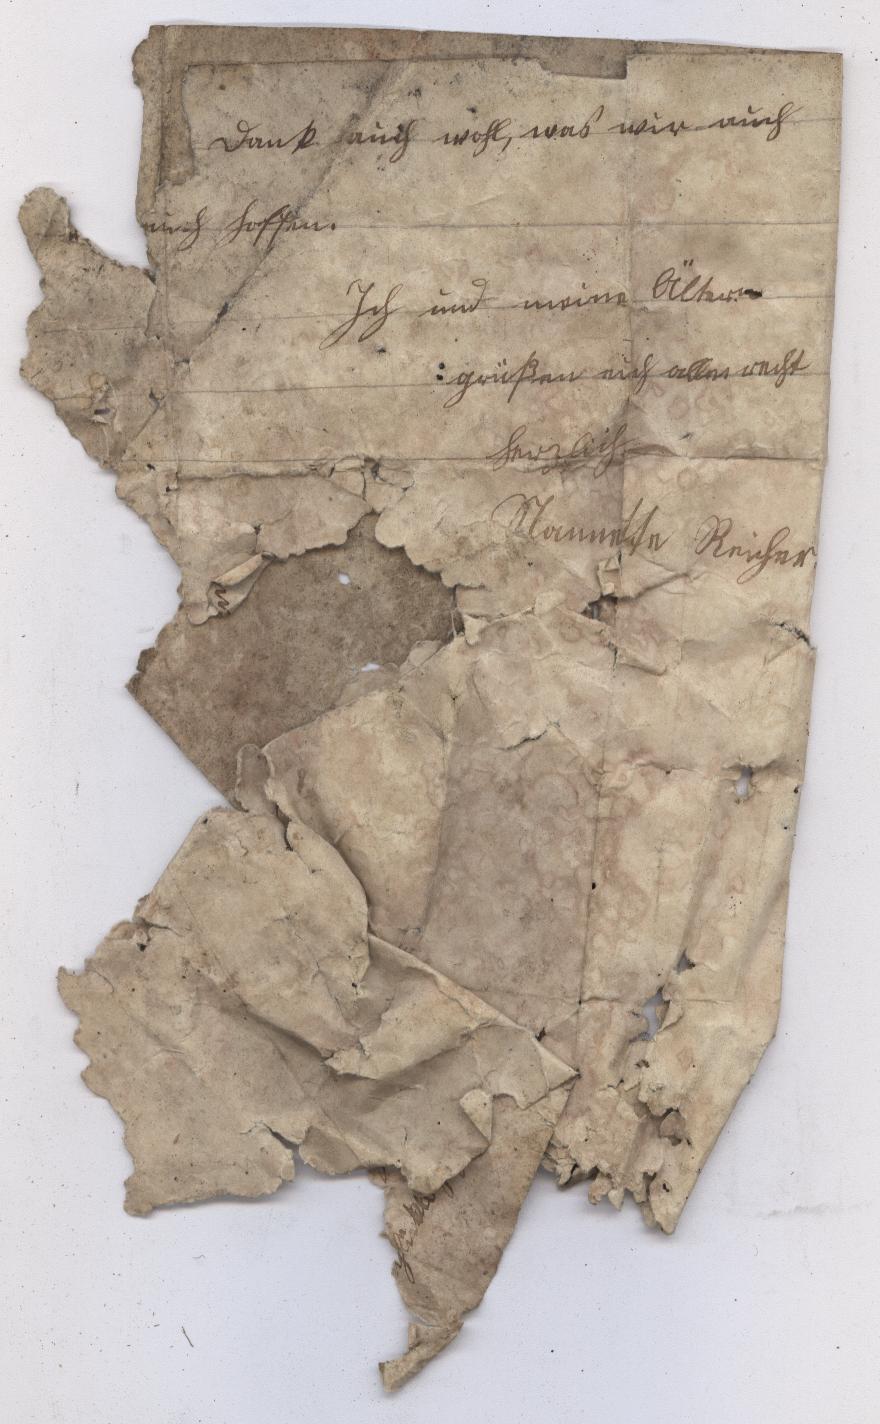 Dank auch wohl, was wir auch
euch hoffen.
Ich und meine Ältern
grüßen euch alle recht
herzlich
Nannette Reicher